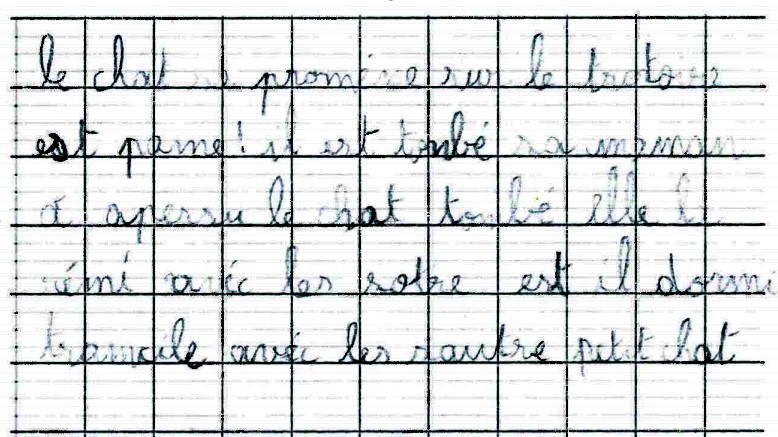 le chat se promène sur le trotoire
est pame! il est tonbé sa maman
a apersu le chat tonbé elle le
rémi avéc les sotre est il dormi
trancile avéc les sautre petit chat